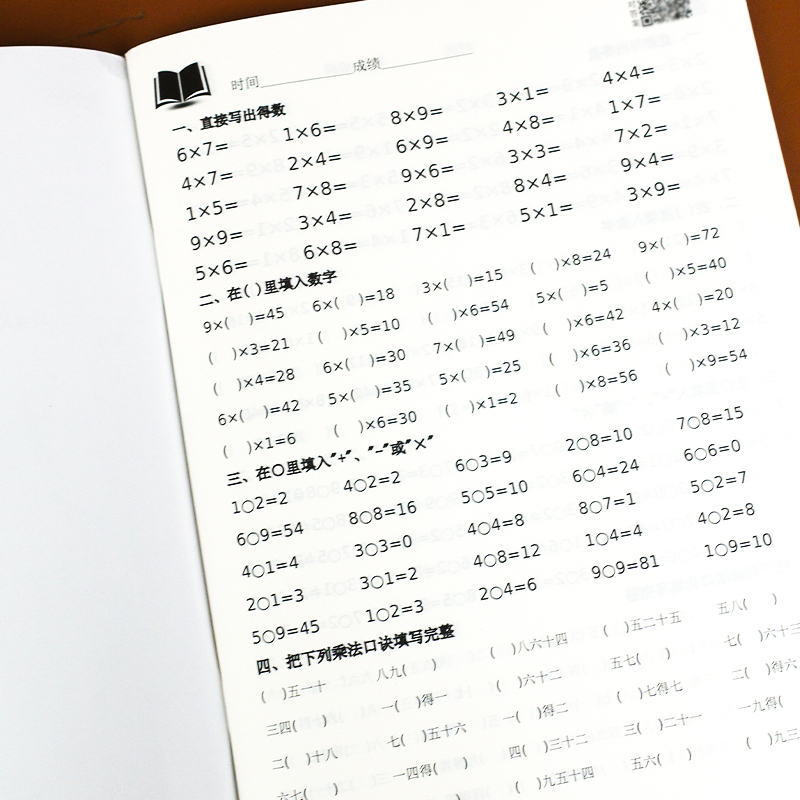 对答案
时间__________成绩__________
一、直接写出得数
6×7= 1×6= 8×9= 3×1= 4×4=
4×7= 2×4= 6×9= 4×8= 1×7=
1×5= 7×8= 9×6= 3×3= 7×2=
9×9= 3×4= 2×8= 8×4= 9×4=
5×6= 6×8= 7×1= 5×1= 3×9=
二、在( )里填入数字
9×( )=45 6×( )=18 3×( )=15 ( )×8=24 9×( )=72
( )×3=21 ( )×5=10 ( )×6=54 5×( )=5 ( )×5=40
( )×4=28 6×( )=30 7×( )=49 ( )×6=42 4×( )=20
6×( )=42 5×( )=35 5×( )=25 ( )×6=36 ( )×3=12
( )×1=6 ( )×6=30 ( )×1=2 ( )×8=56 ( )×9=54
三、在○里填入"+"、"-"或"×"
1○2=2 4○2=2 6○3=9 2○8=10 7○8=15
6○9=54 8○8=16 5○5=10 6○4=24 6○6=0
4○1=4 3○3=0 4○4=8 8○7=1 5○2=7
2○1=3 3○1=2 4○8=12 1○4=4 4○2=8
5○9=45 1○2=3 2○4=6 9○9=81 1○9=10
四、把下列乘法口诀填写完整
( )五一十 八九( ) ( )八六十四 ( )五二十五 五八( )
三四( ) 一( )得一 ( )六十二 五七( ) 七( )六十三
二( )十八 七( )五十六 一( )得二 ( )七得七 二( )得六
六七( ) 一四得( ) 四( )三十二 三( )二十一 一九得(
( )九五十四 五六( ) ( )九三